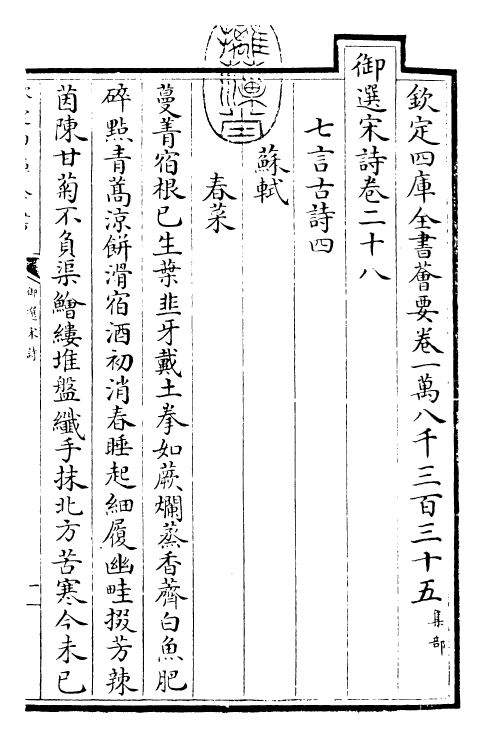 欽定四庫全書薈要卷一萬八千三百三十五 集部
御選宋詩卷二十八
七言古詩四
蘇軾
春菜
蔓菁宿根已生葉韭牙戴土拳如蕨爛蒸香薺白魚肥
碎點青蒿涼餅滑宿酒初消春睡起細履幽畦掇芳辣
茵陳甘菊不負渠鱠縷堆盤纖手抹北方苦寒今未已
御選宋詩